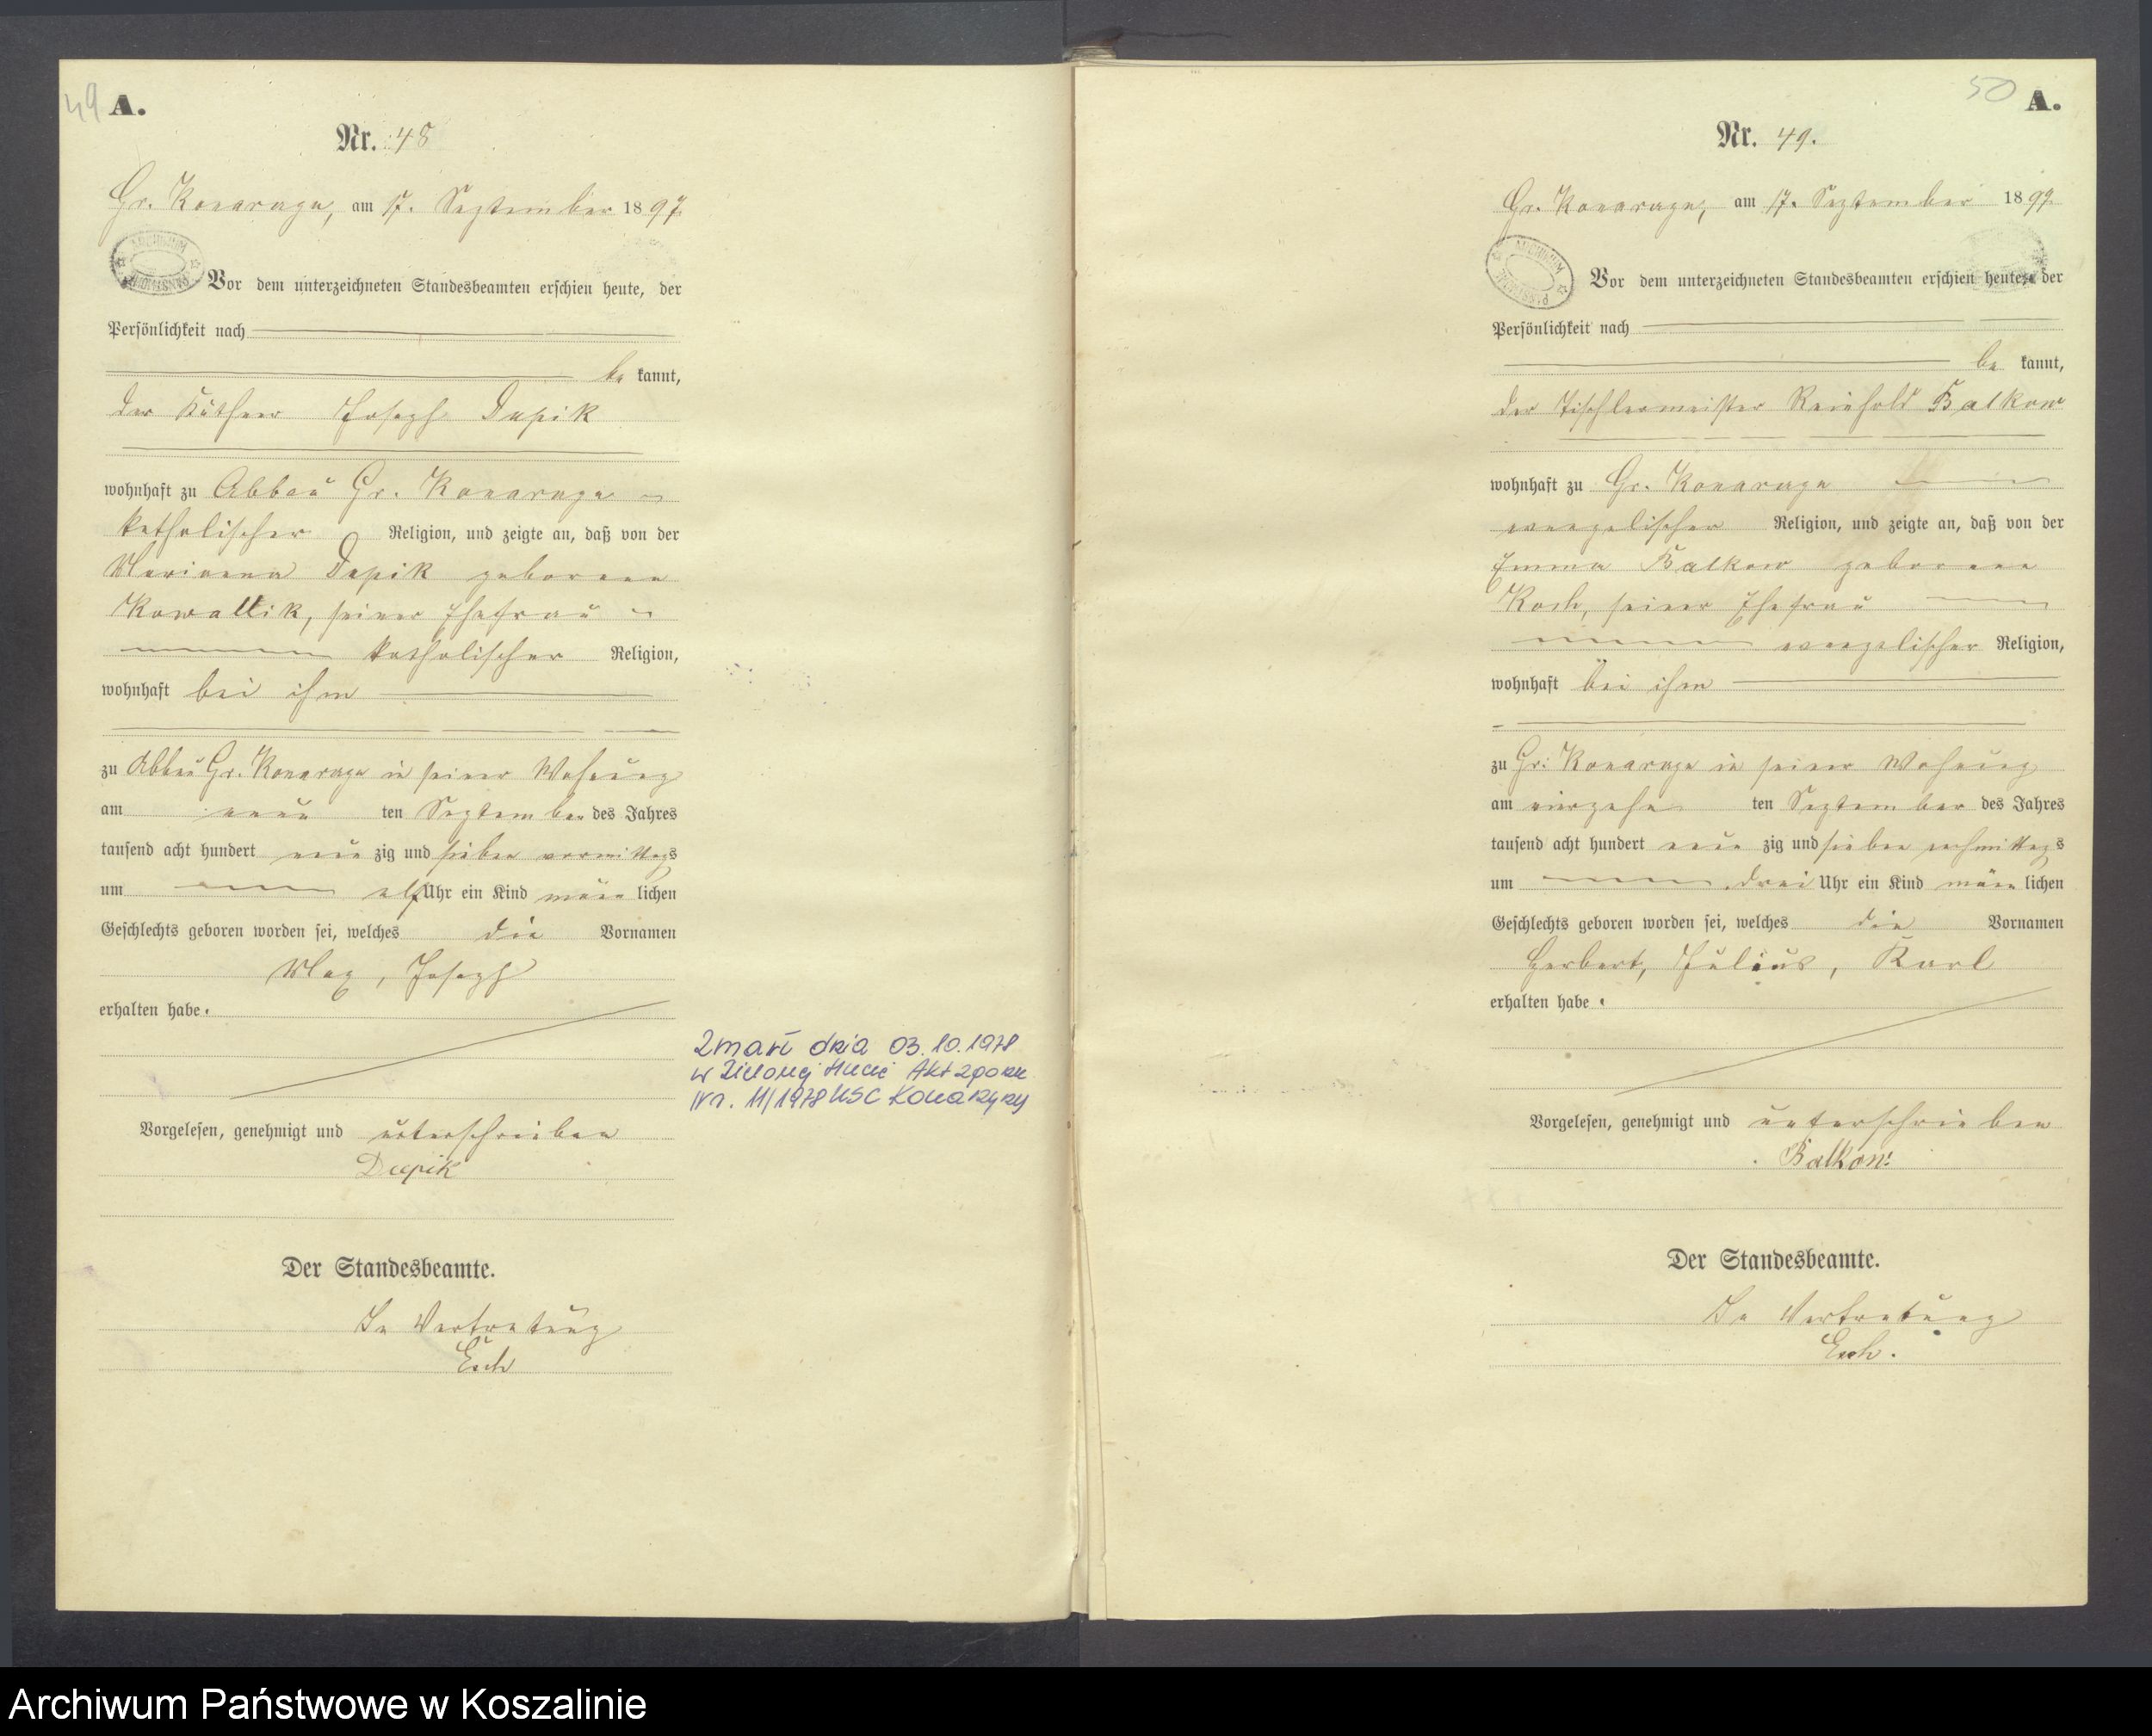 49 A.
Nr. 48
Gr. Konarczyn, am 17. September 1897
ARCHIWUM
Vor dem unterzeichneten Standesbeamten erschien heute, der
Persönlichkeit nach
be kannt,
der Käthner Joseph
wohnhaft zu Abbau Gr. Konarczyn
katholischer Religion, und zeigte an, daß von der
Marianna geborene
Kowallik, seiner Ehefrau
katholischer Religion,
wohnhaft bei ihm
zu Abbau Gr. Konarczyn in seiner Wohnung
am neun ten September des Jahres
tausend acht hundert neun zig und sieben vormittags
um elf Uhr ein Kind männ lichen
Geschlechts geboren worden sei, welches die Vornamen
Max, Joseph
erhalten habe.
Zmarł dnia 03.10.1978
w Zielonej Hucie Akt zgonu
Nr. 11/1978 USC Konarzyny
Vorgelesen, genehmigt und unterschrieben
Der Standesbeamte.
In Vertretung
Esch
50 A.
Nr. 49.
Gr. Konarczyn, am 17. September 1897
ARCHIWUM
Vor dem unterzeichneten Standesbeamten erschien heute, der
Persönlichkeit nach
be kannt,
der Tischlermeister Reinhold Balkow
wohnhaft zu Gr. Konarczyn
evangelischer Religion, und zeigte an, daß von der
Emma Balkow geborene
Koch, seiner Ehefrau
evangelischer Religion,
wohnhaft bei ihm
zu Gr. Konarczyn in seiner Wohnung
am vierzehn ten September des Jahres
tausend acht hundert neun zig und sieben nachmittags
um drei Uhr ein Kind männ lichen
Geschlechts geboren worden sei, welches die Vornamen
Herbert, Julius, Karl
erhalten habe.
Vorgelesen, genehmigt und unterschrieben
Balkow.
Der Standesbeamte.
In Vertretung
Esch.
Archiwum Państwowe w Koszalinie